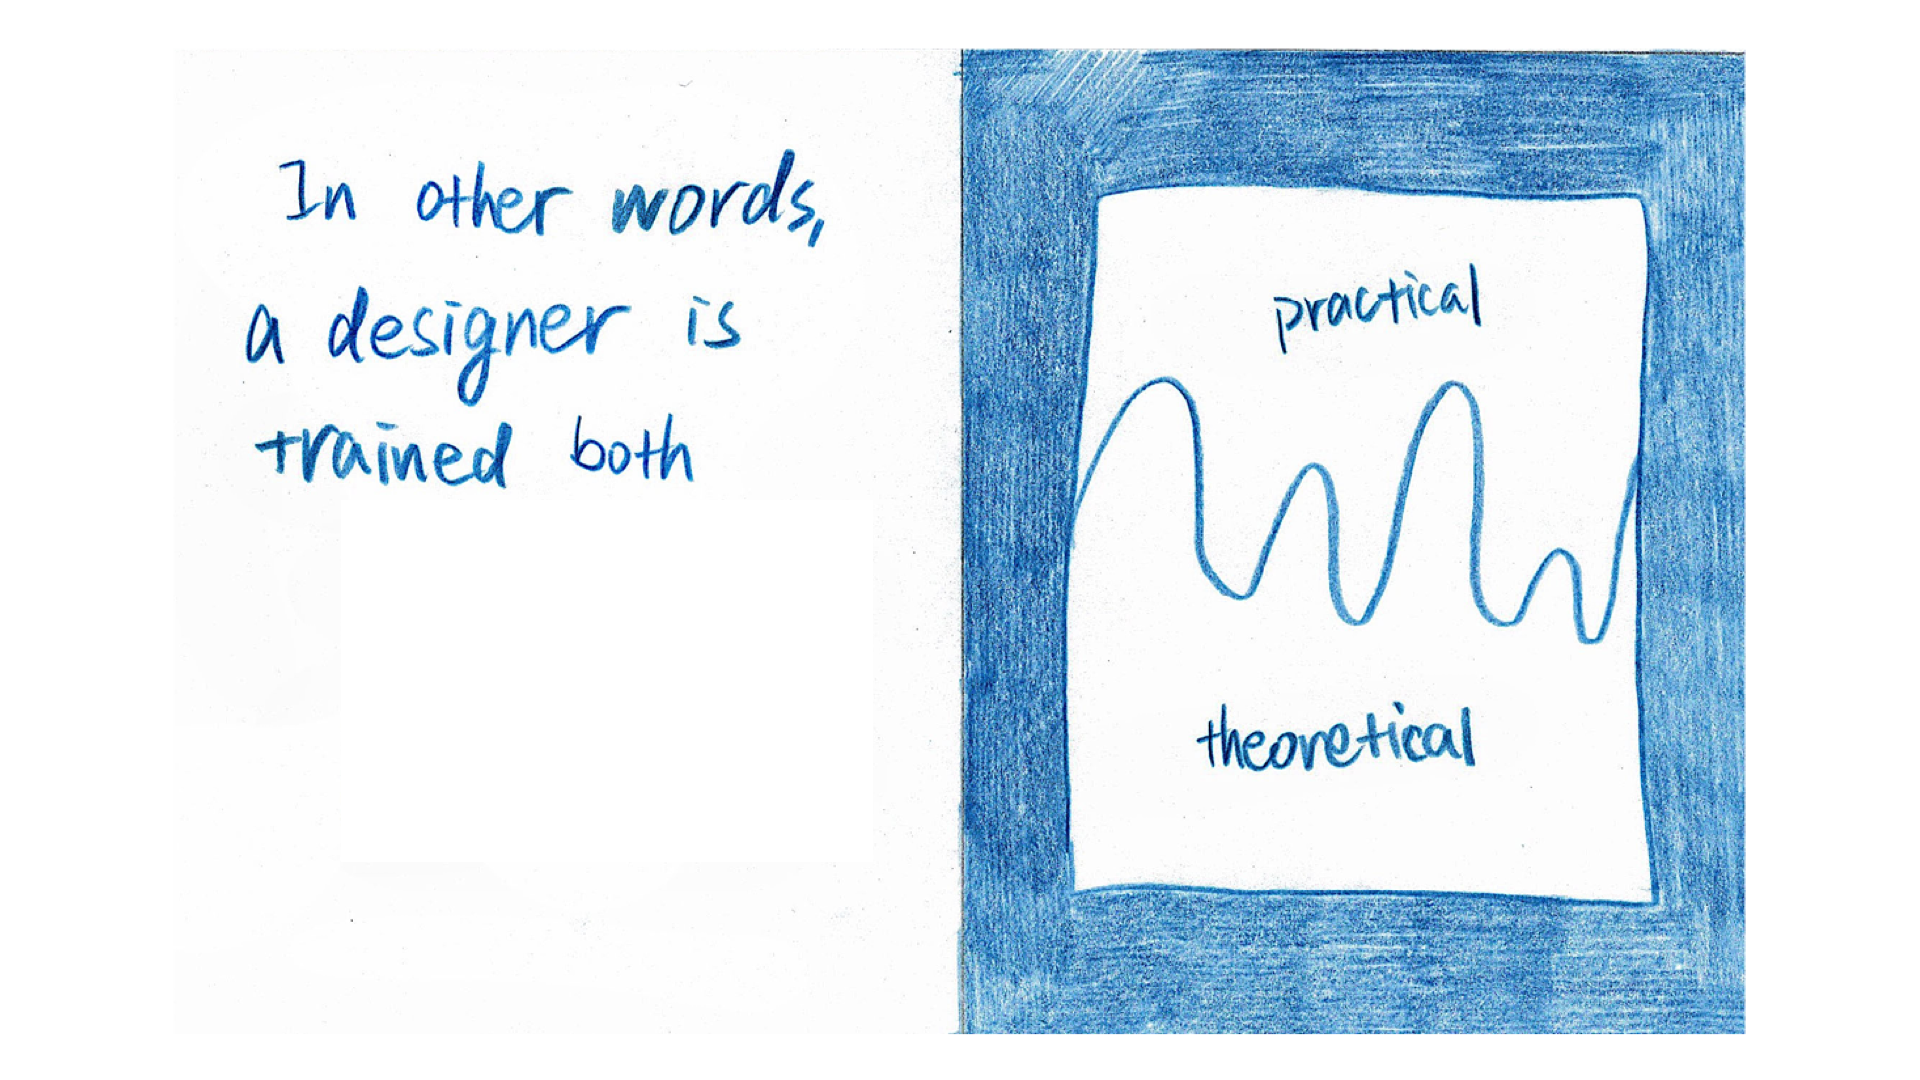 In other words,
a designer is
trained both
practical
theoretical